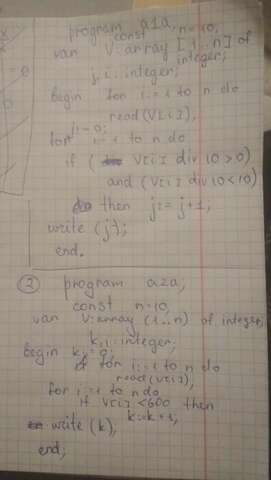 program a1a,
const n=10,
var V: array [1..n] of
integer;
j,i: integer;
begin for i:=1 to n do
read (V[i]),
j:=0;
for i:=1 to n do
if (V[i] div 10>0)
and (V[i] div 10<10)
then j:= j+1,
write (j);
end.
② program a2a,
const n=10,
var V: array (1..n) of integer;
k,i: integer,
begin k:=0;
for i:=1 to n do
read(V[i]),
for i:=1 to n do
if V[i] <600 then
k:=k+1,
write (k),
end;